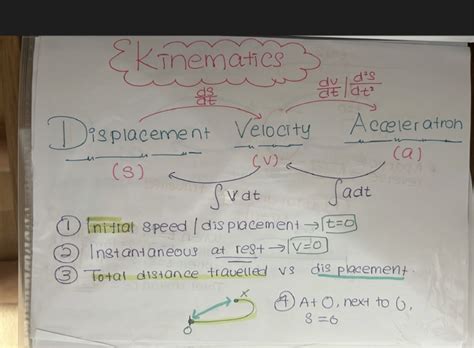 Kinematics
ds/dt
dv/dt | d²s/dt²
Displacement Velocity Acceleration
(s) (v) (a)
∫v dt ∫adt
① Initial speed / displacement → t=0
② Instantaneous at rest → v=0
③ Total distance travelled vs displacement.
x
④ At O, next to O,
s=0
O